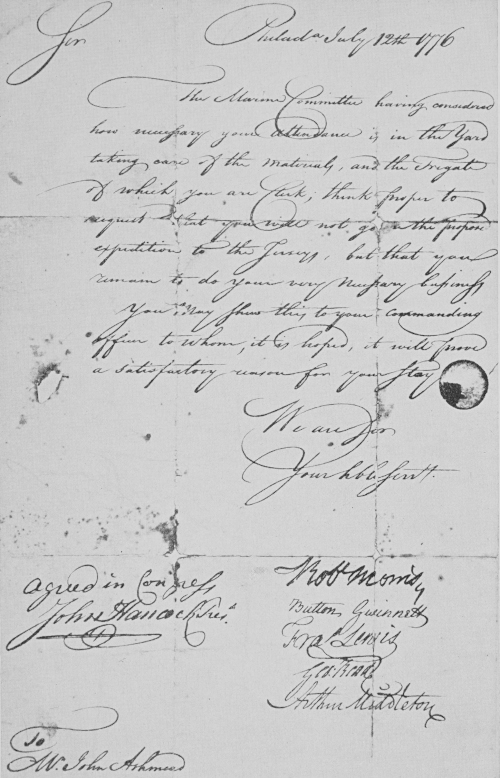 Sir Philada July 12th 1776
The Marine Committee having considered
how necessary your attendance is in the Yard
taking care of the materials, and the Frigate
of which you are Clerk; think proper to
request that you will not go on the propos'd
expedition to the Jerseys, but that you
remain to do your very necessary bussiness
You may shew this to your commanding
officer to whom, it is hoped, it will prove
a satisfactory reason for your stay
We are Sir
Your hble Servts.
agreed in Congress
John Hancock Prest.
Robt Morris
Button Gwinnett
Fras. Lewis
Geo. Read
Arthur Middleton
To
Mr. John Ashmead